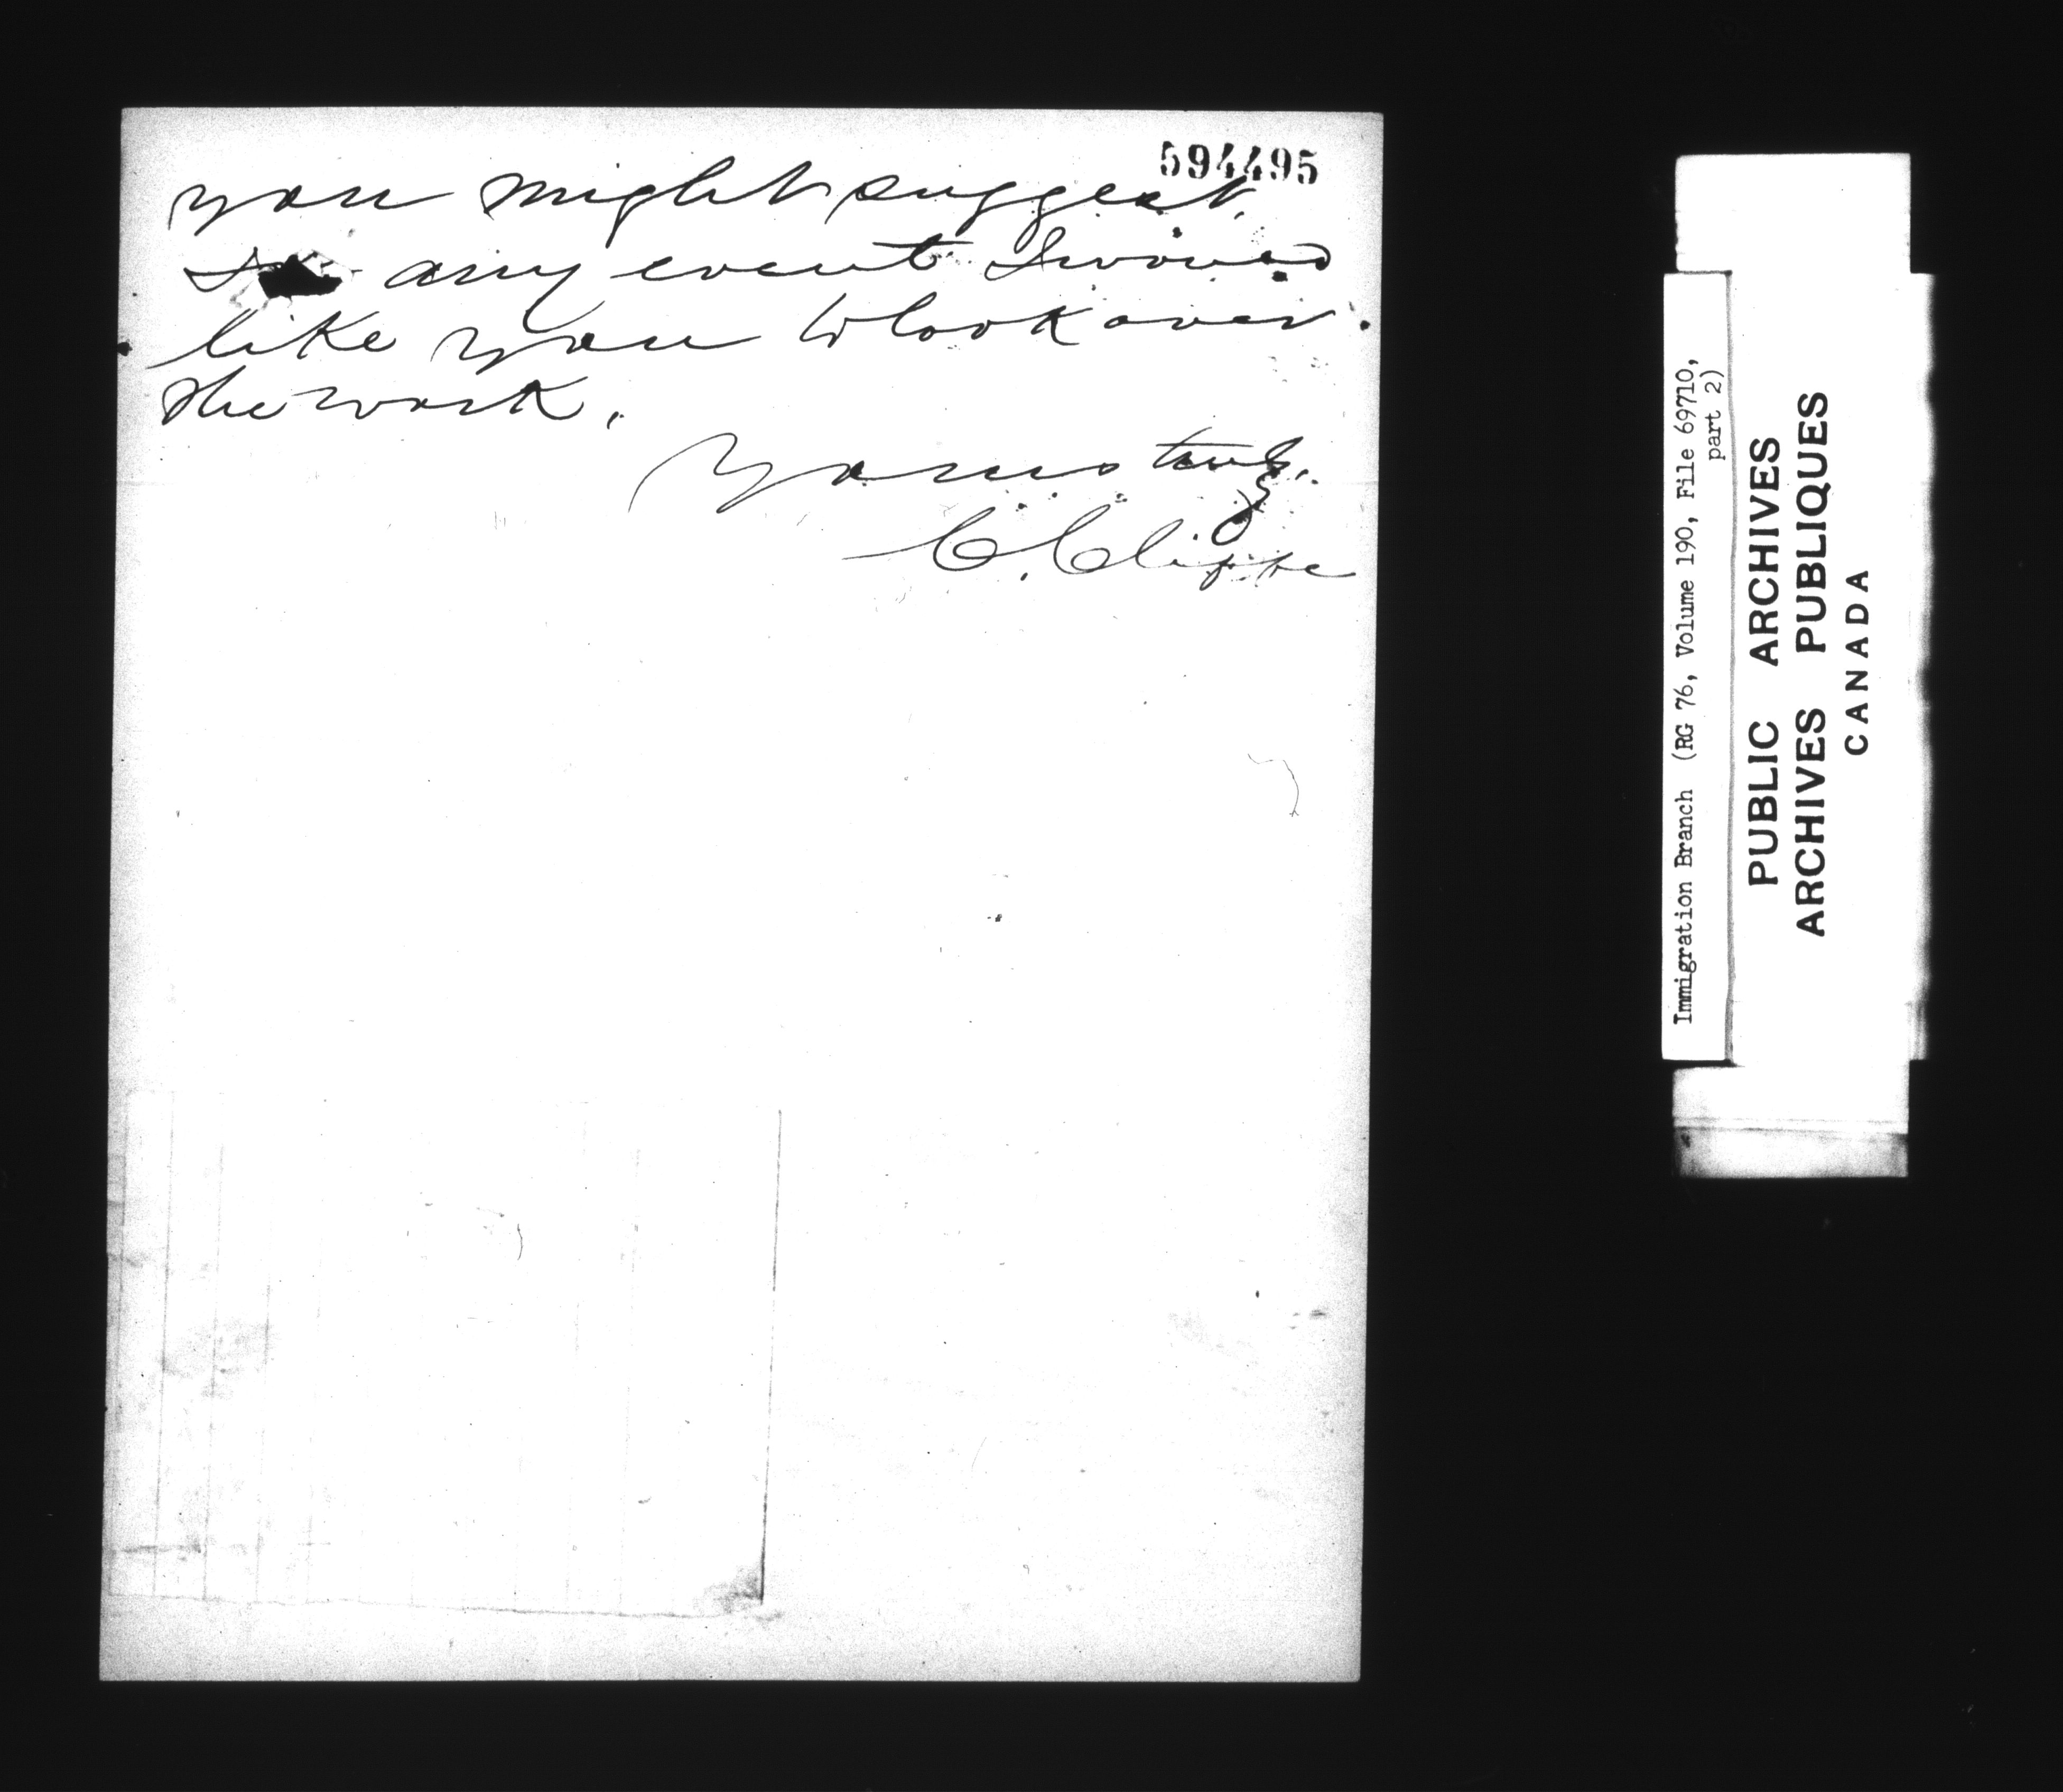 594495
you might suggest.
any event I would
like you to look over
the work.
Yours truly.
C. Cliffe
Immigration Branch (RG 76, Volume 190, File 69710,
part 2)
PUBLIC ARCHIVES
ARCHIVES PUBLIQUES
CANADA